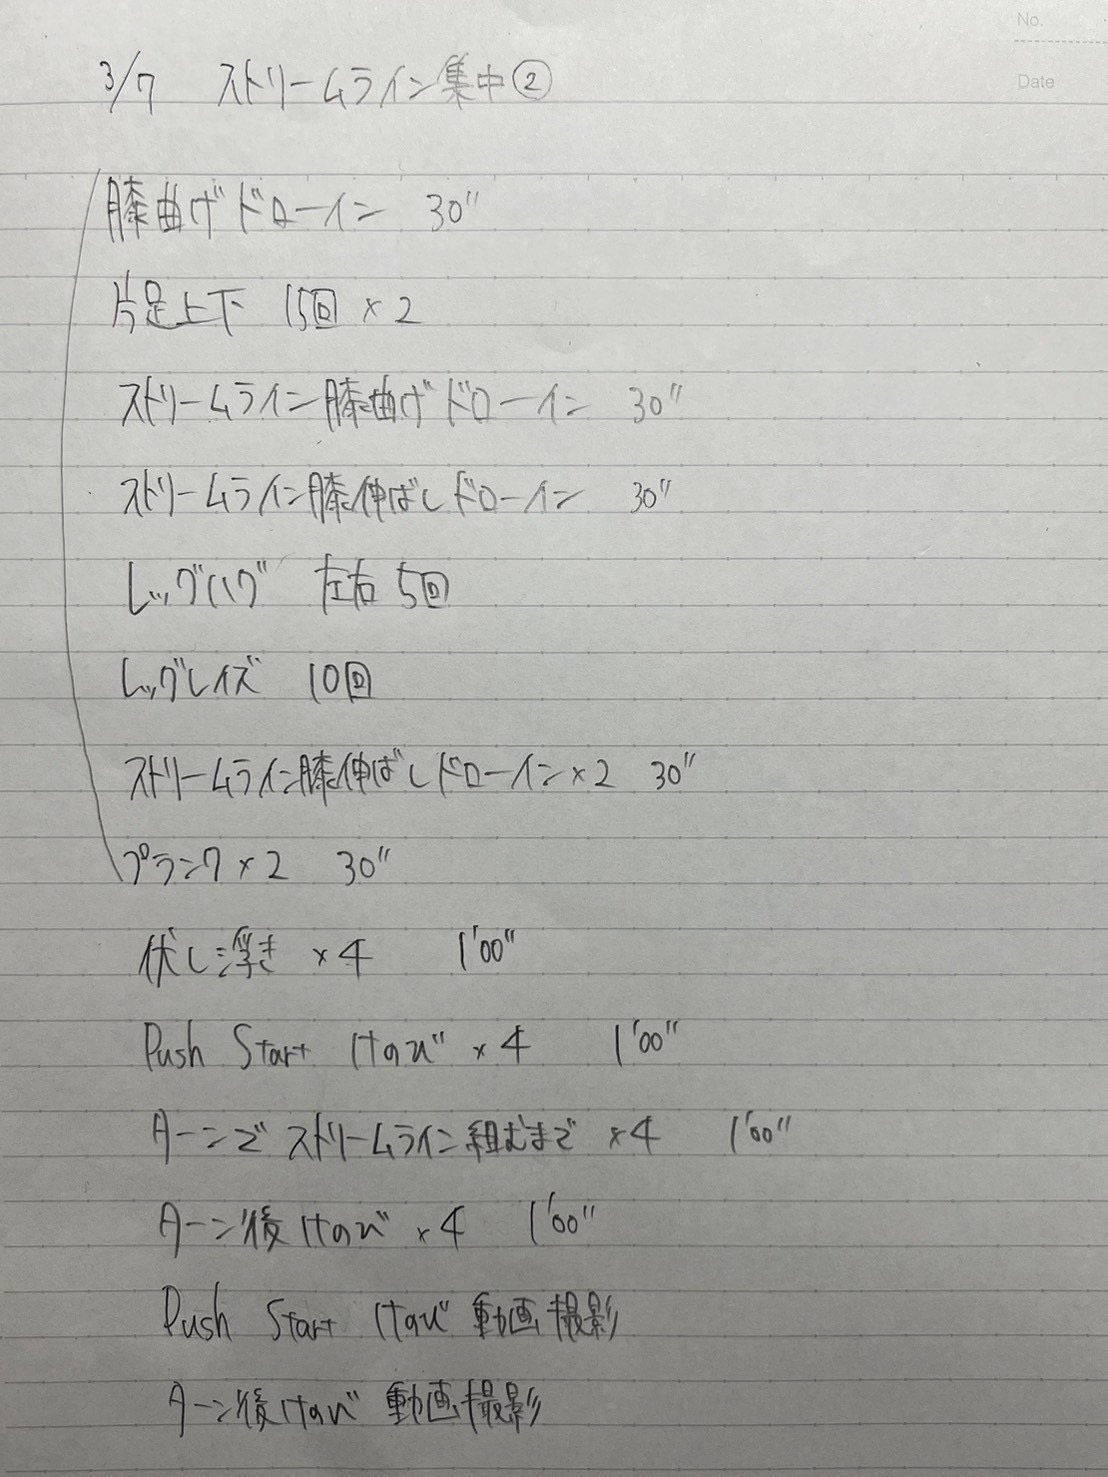 No.
Date
3/7 ストリームライン集中②
膝曲げドローイン 30"
片足上下 15回 × 2
ストリームライン膝曲げドローイン 30"
ストリームライン膝伸ばしドローイン 30"
レッグハグ 左右 5回
レッグレイズ 10回
ストリームライン膝伸ばしドローイン×2 30"
プランク×2 30"
伏し浮き ×4 1'00"
Push Start けのび ×4 1'00"
ターンでストリームライン組むまで ×4 1'00"
ターン後けのび ×4 1'00"
Push Start けのび 動画撮影
ターン後けのび 動画撮影